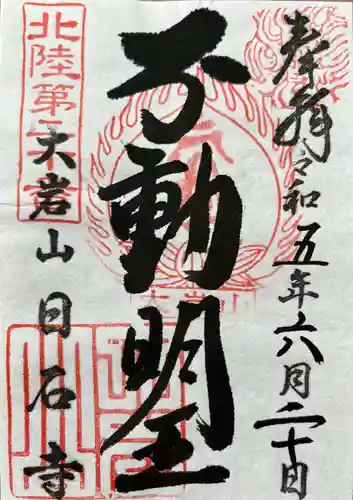 奉拝
令和五年六月二十日
不動明王
北陸第
大岩山日石寺